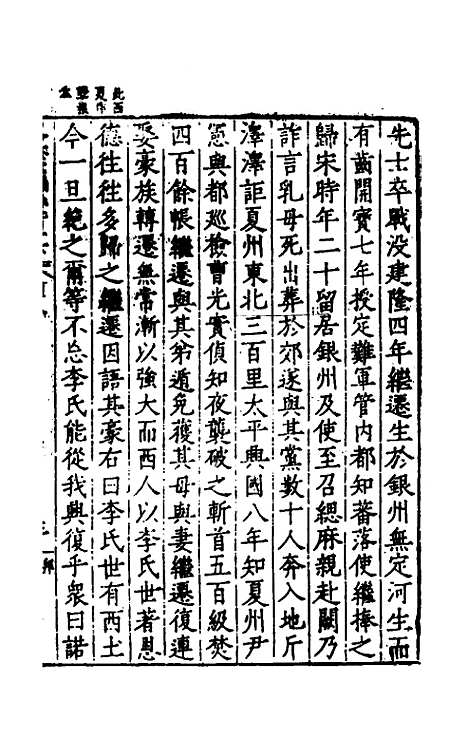 先士卒戰没建隆四年繼遷生於銀州無定河生而
有齒開寶七年授定難軍管内都知蕃落使繼捧之
歸宋時年二十留居銀州及使至召緦麻親赴闕乃
詐言乳母死出葬於郊遂與其黨數十人奔入地斤
澤澤距夏州東北三百里太平興國八年知夏州尹
憲與都廵檢曹光實偵知夜襲破之斬首五百級焚
四百餘帳繼遷與其弟遁免獲其母與妻繼遷復連
娶豪族轉遷無常漸以強大而西人以李氏世著恩
德往往多歸之繼遷因語其豪右曰李氏世有西土
今一旦絶之爾等不忘李氏能從我興復乎衆曰諾